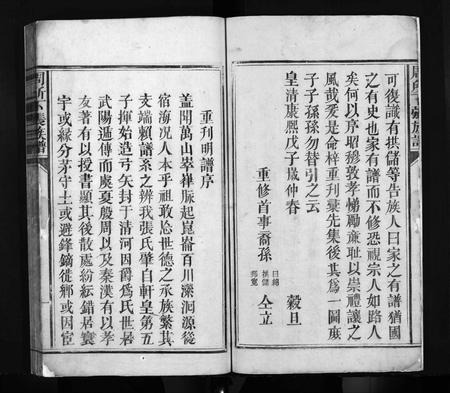 可復識有拱儲等告族人曰家之有譜猶國
之有史也家有譜而不修恐視宗人如路人
矣何以序昭穆敦孝悌勵廉耻以崇禮讓之
風哉爰是命梓重刊彙先集後其爲一圖庶
子子孫孫勿替引之云
皇清康熙戊子歲仲春 穀旦
重修首事裔孫 曰錦 拱儲 邦寬 仝立
重刊明譜序
蓋聞萬山崒嵂脈起崑崙百川濚洄源從
宿海况人本乎祖敢忘世德之承族繁其
支端賴譜系之辨我張氏肇自軒皇第五
子揮始造弓矢封于清河因爵爲氏世居
武陽遞傳而虞夏殷周以及秦漢有以孝
友著有以授書顯其後散處紛紜錯居寰
宇或緣分茅守土或避鋒鏑徙鄉或因宦